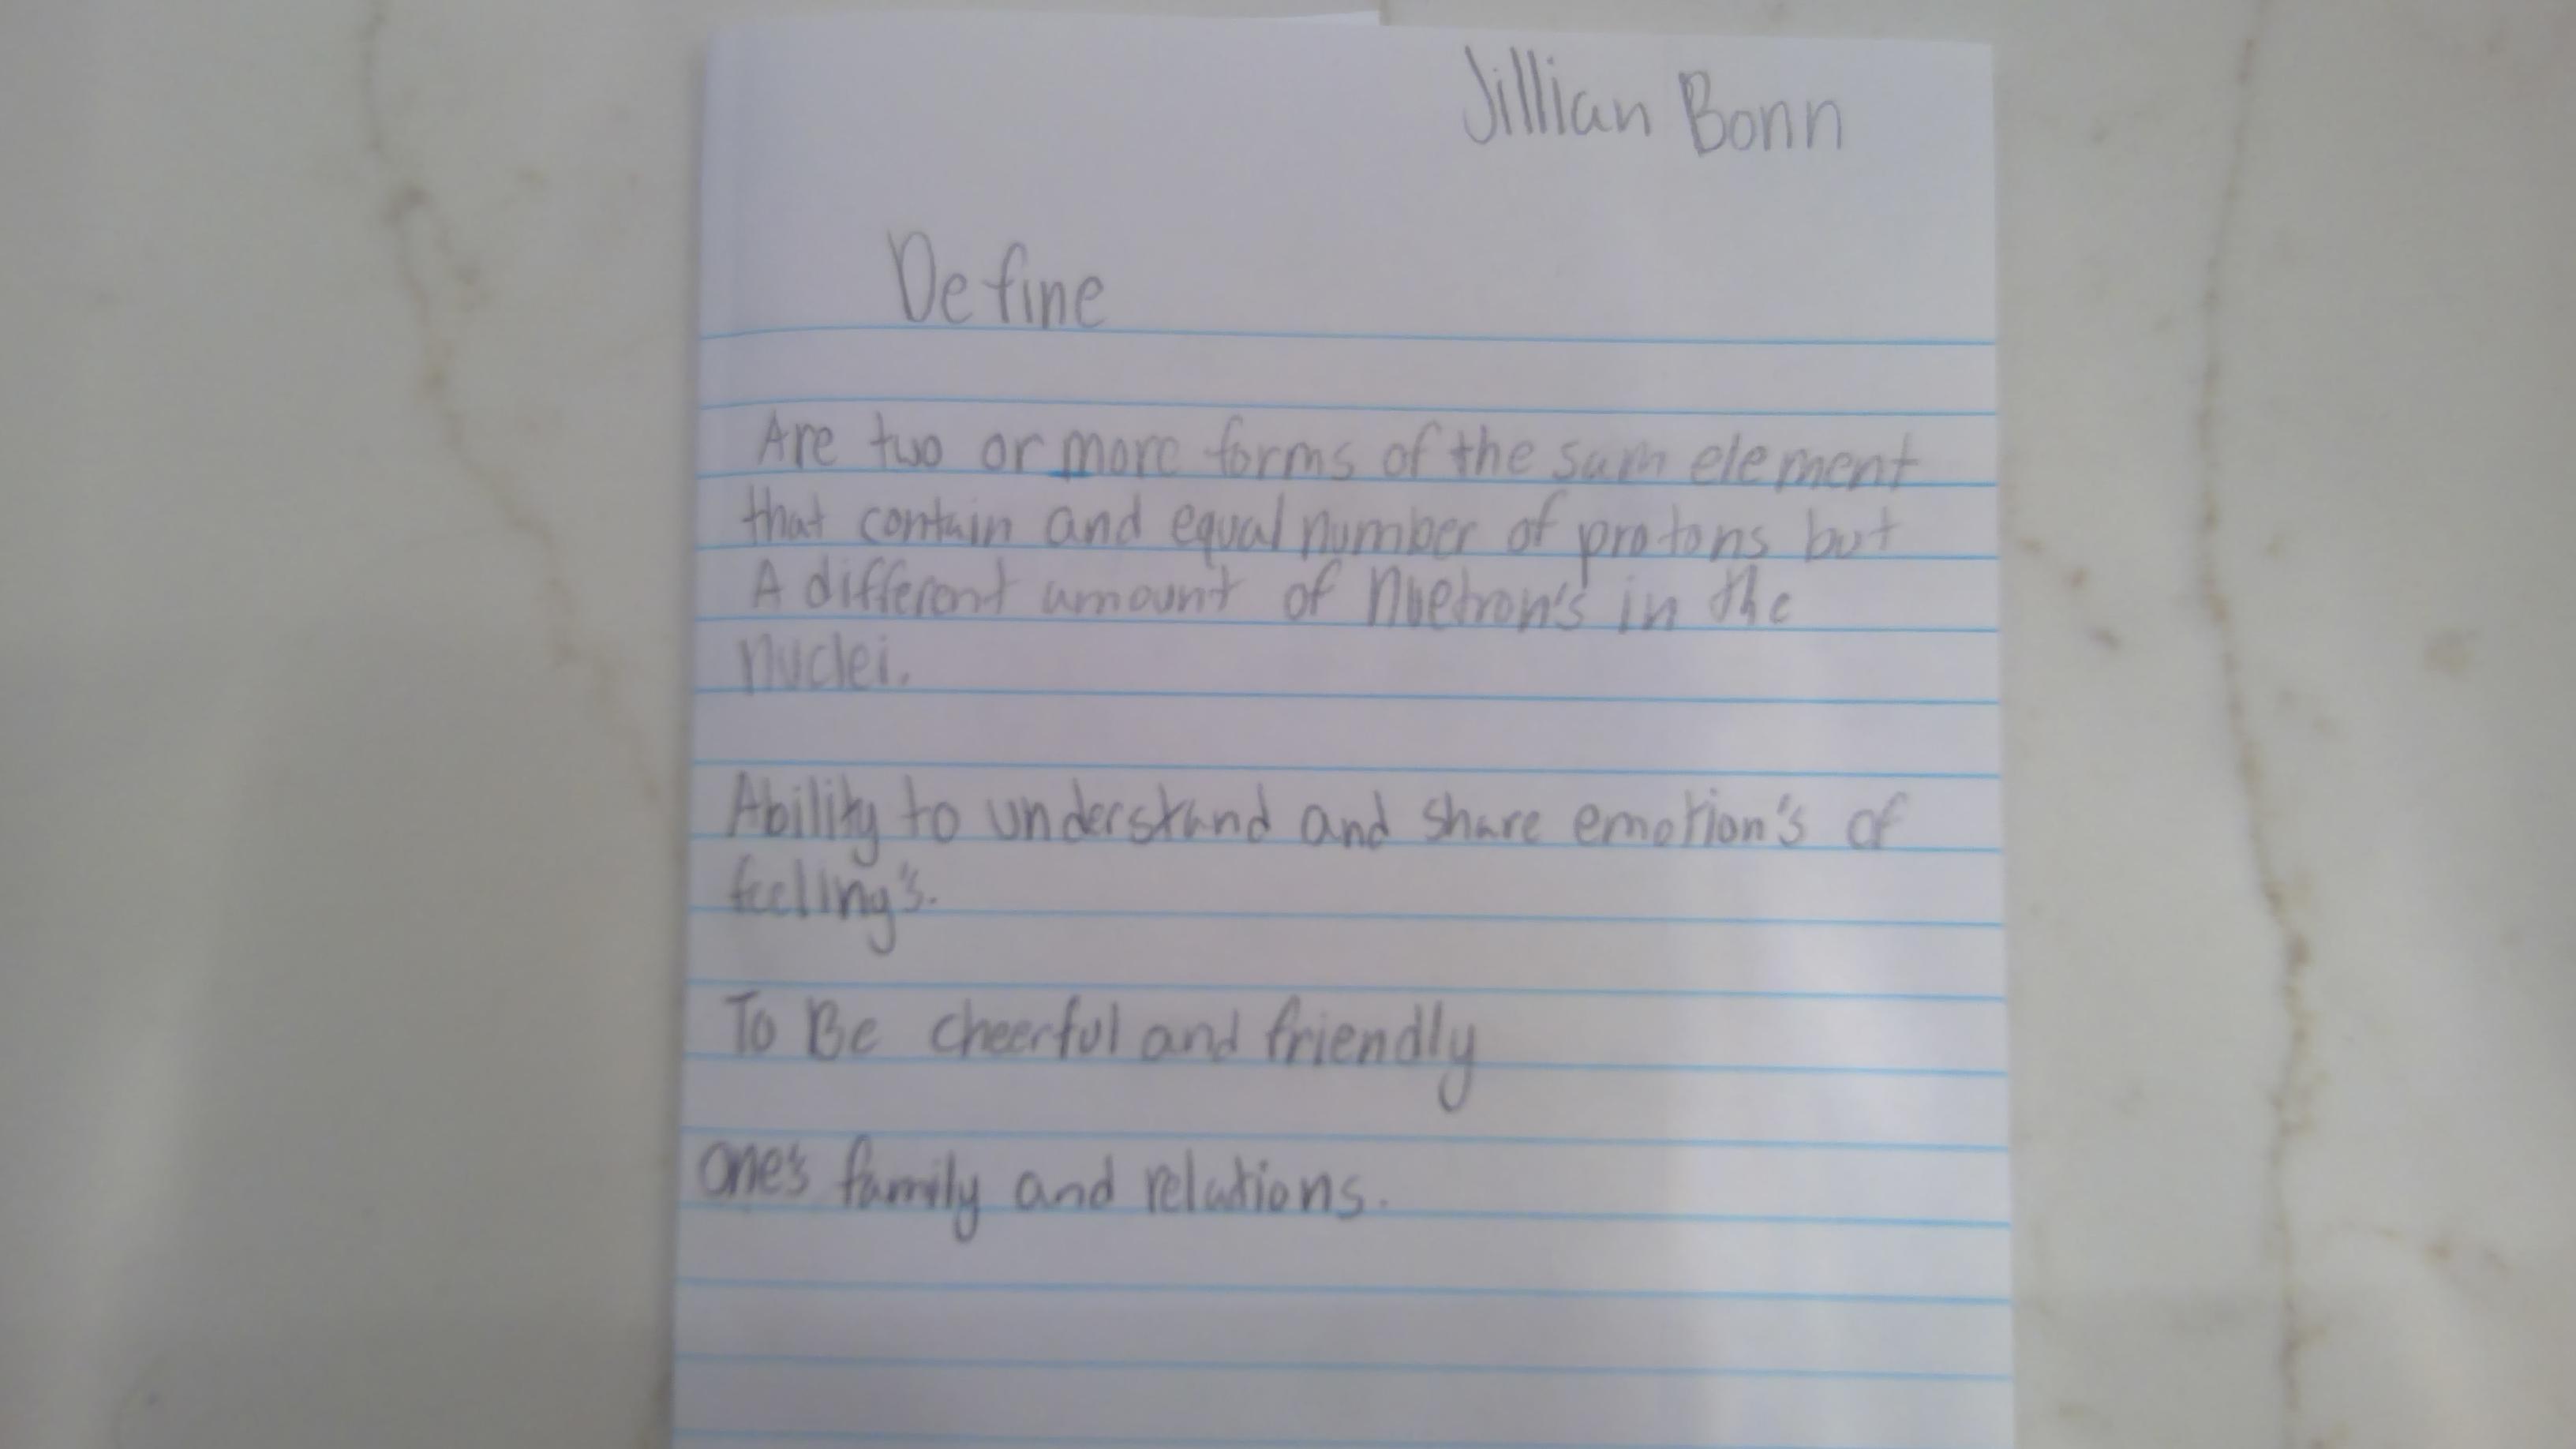 Jillian Bonn
Define
Are two or more forms of the sam element
that contain and equal number of protons but
A different amount of Nuetron's in the
nuclei.
Ability to understand and share emotion's of
feeling's.
To Be cheerful and friendly
one's family and relations.